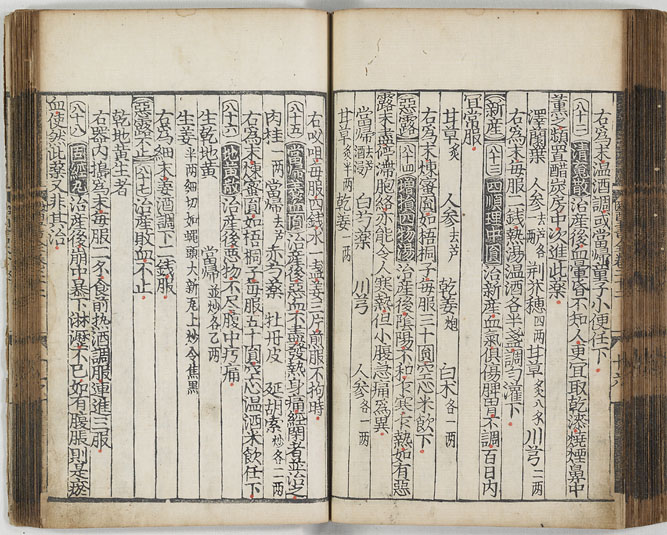 右為末温酒調或當歸童子小便任下
八十二 清魂散 治産後血暈昏不知人更宜取乾漆燒煙鼻中
薰少頃置醋炭房中次進此藥
澤蘭葉 人参去芦各一兩 荆芥穂四兩 甘草炙八錢 川芎二兩
右為末毎服二錢熱湯温酒各半盞調了灌下
新産 八十三 四順理中圓 治新産血氣俱傷脾胃不調百日内
宜常服
甘草炙 人参去芦 乾姜炮 白朮各一兩
右為末煉蜜圓如梧桐子毎服三十圓空心米飲下
惡露 八十四 増損四物湯 治産後陰陽不和乍寒乍熱如有惡
露未盡停滯胞絡亦能令人寒熱但小腹急痛為異
當歸去芦酒浸 白芍藥 川芎 人参各一兩
甘草炙半兩 乾姜一兩
右㕮咀毎服四錢水一盞姜三片煎服不拘時
八十五 當歸養血圓 治産後惡血不盡發熱身痛經閉者並治之
肉桂一兩 當歸去芦 赤芍藥 牡丹皮 延胡索炒各二兩
右為末煉蜜圓如梧桐子毎服五十圓空心温酒米飲任下
八十六 地黄散 治産後惡物不尽腹中㽲痛
生乾地黄 當歸並炒各乙兩
生姜半兩細切如蝿頭大新瓦上炒令焦黒
右為細末姜酒調下二錢服
惡露不止 八十七 治産敗血不止
乾地黄生者
右器内搗為末毎服二錢食前热酒調服連進三服
八十八 固經丸 治産後崩中暴下淋瀝不已如有腹脹則是瘀
血使然此藥又非其治